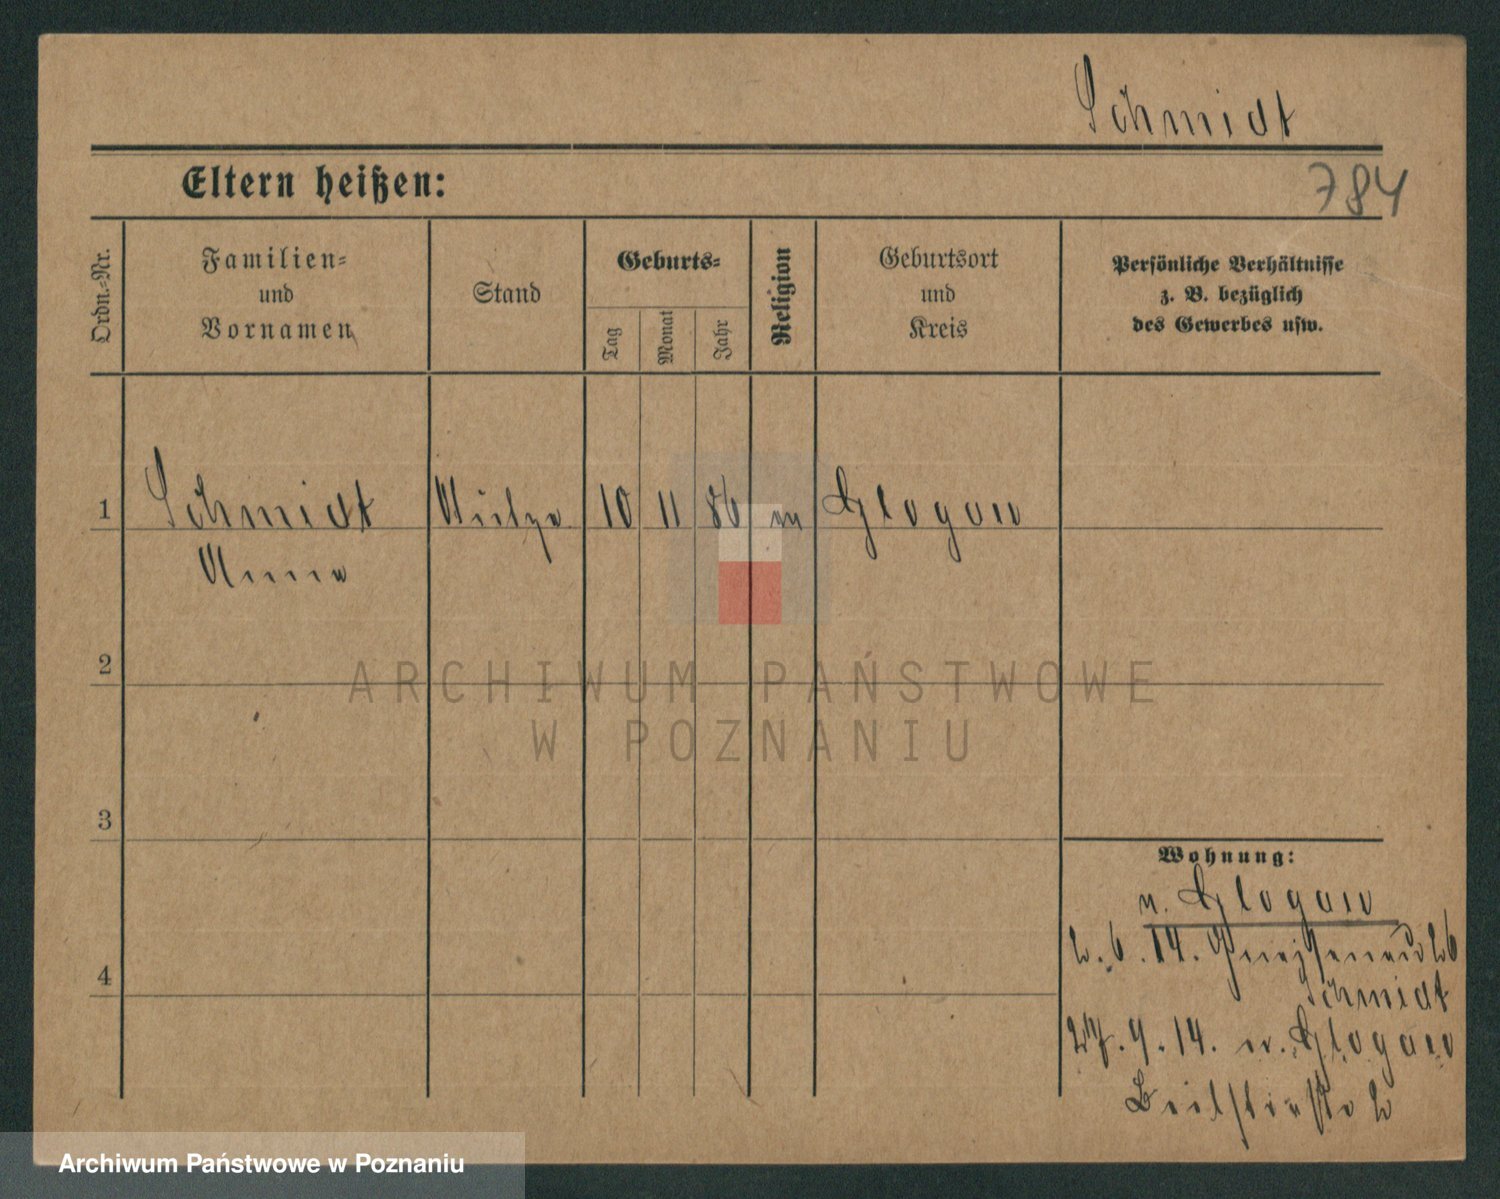 Schmidt
Eltern heißen:
784
Ordn.-Nr.
Familien-
und
Vornamen
Stand
Geburts-
Tag
Monat
Jahr
Religion
Geburtsort
und
Kreis
Persönliche Verhältnisse
z. B. bezüglich
des Gewerbes usw.
1 Schmidt Stütze 10 11 86 ev Glogau
Anna
2
ARCHIWUM PAŃSTWOWE
W POZNANIU
3
Wohnung:
n. Glogau
2.6.14. Gneisenau 26
Schmidt
4
27.9.14. n. Glogau
2
Archiwum Państwowe w Poznaniu